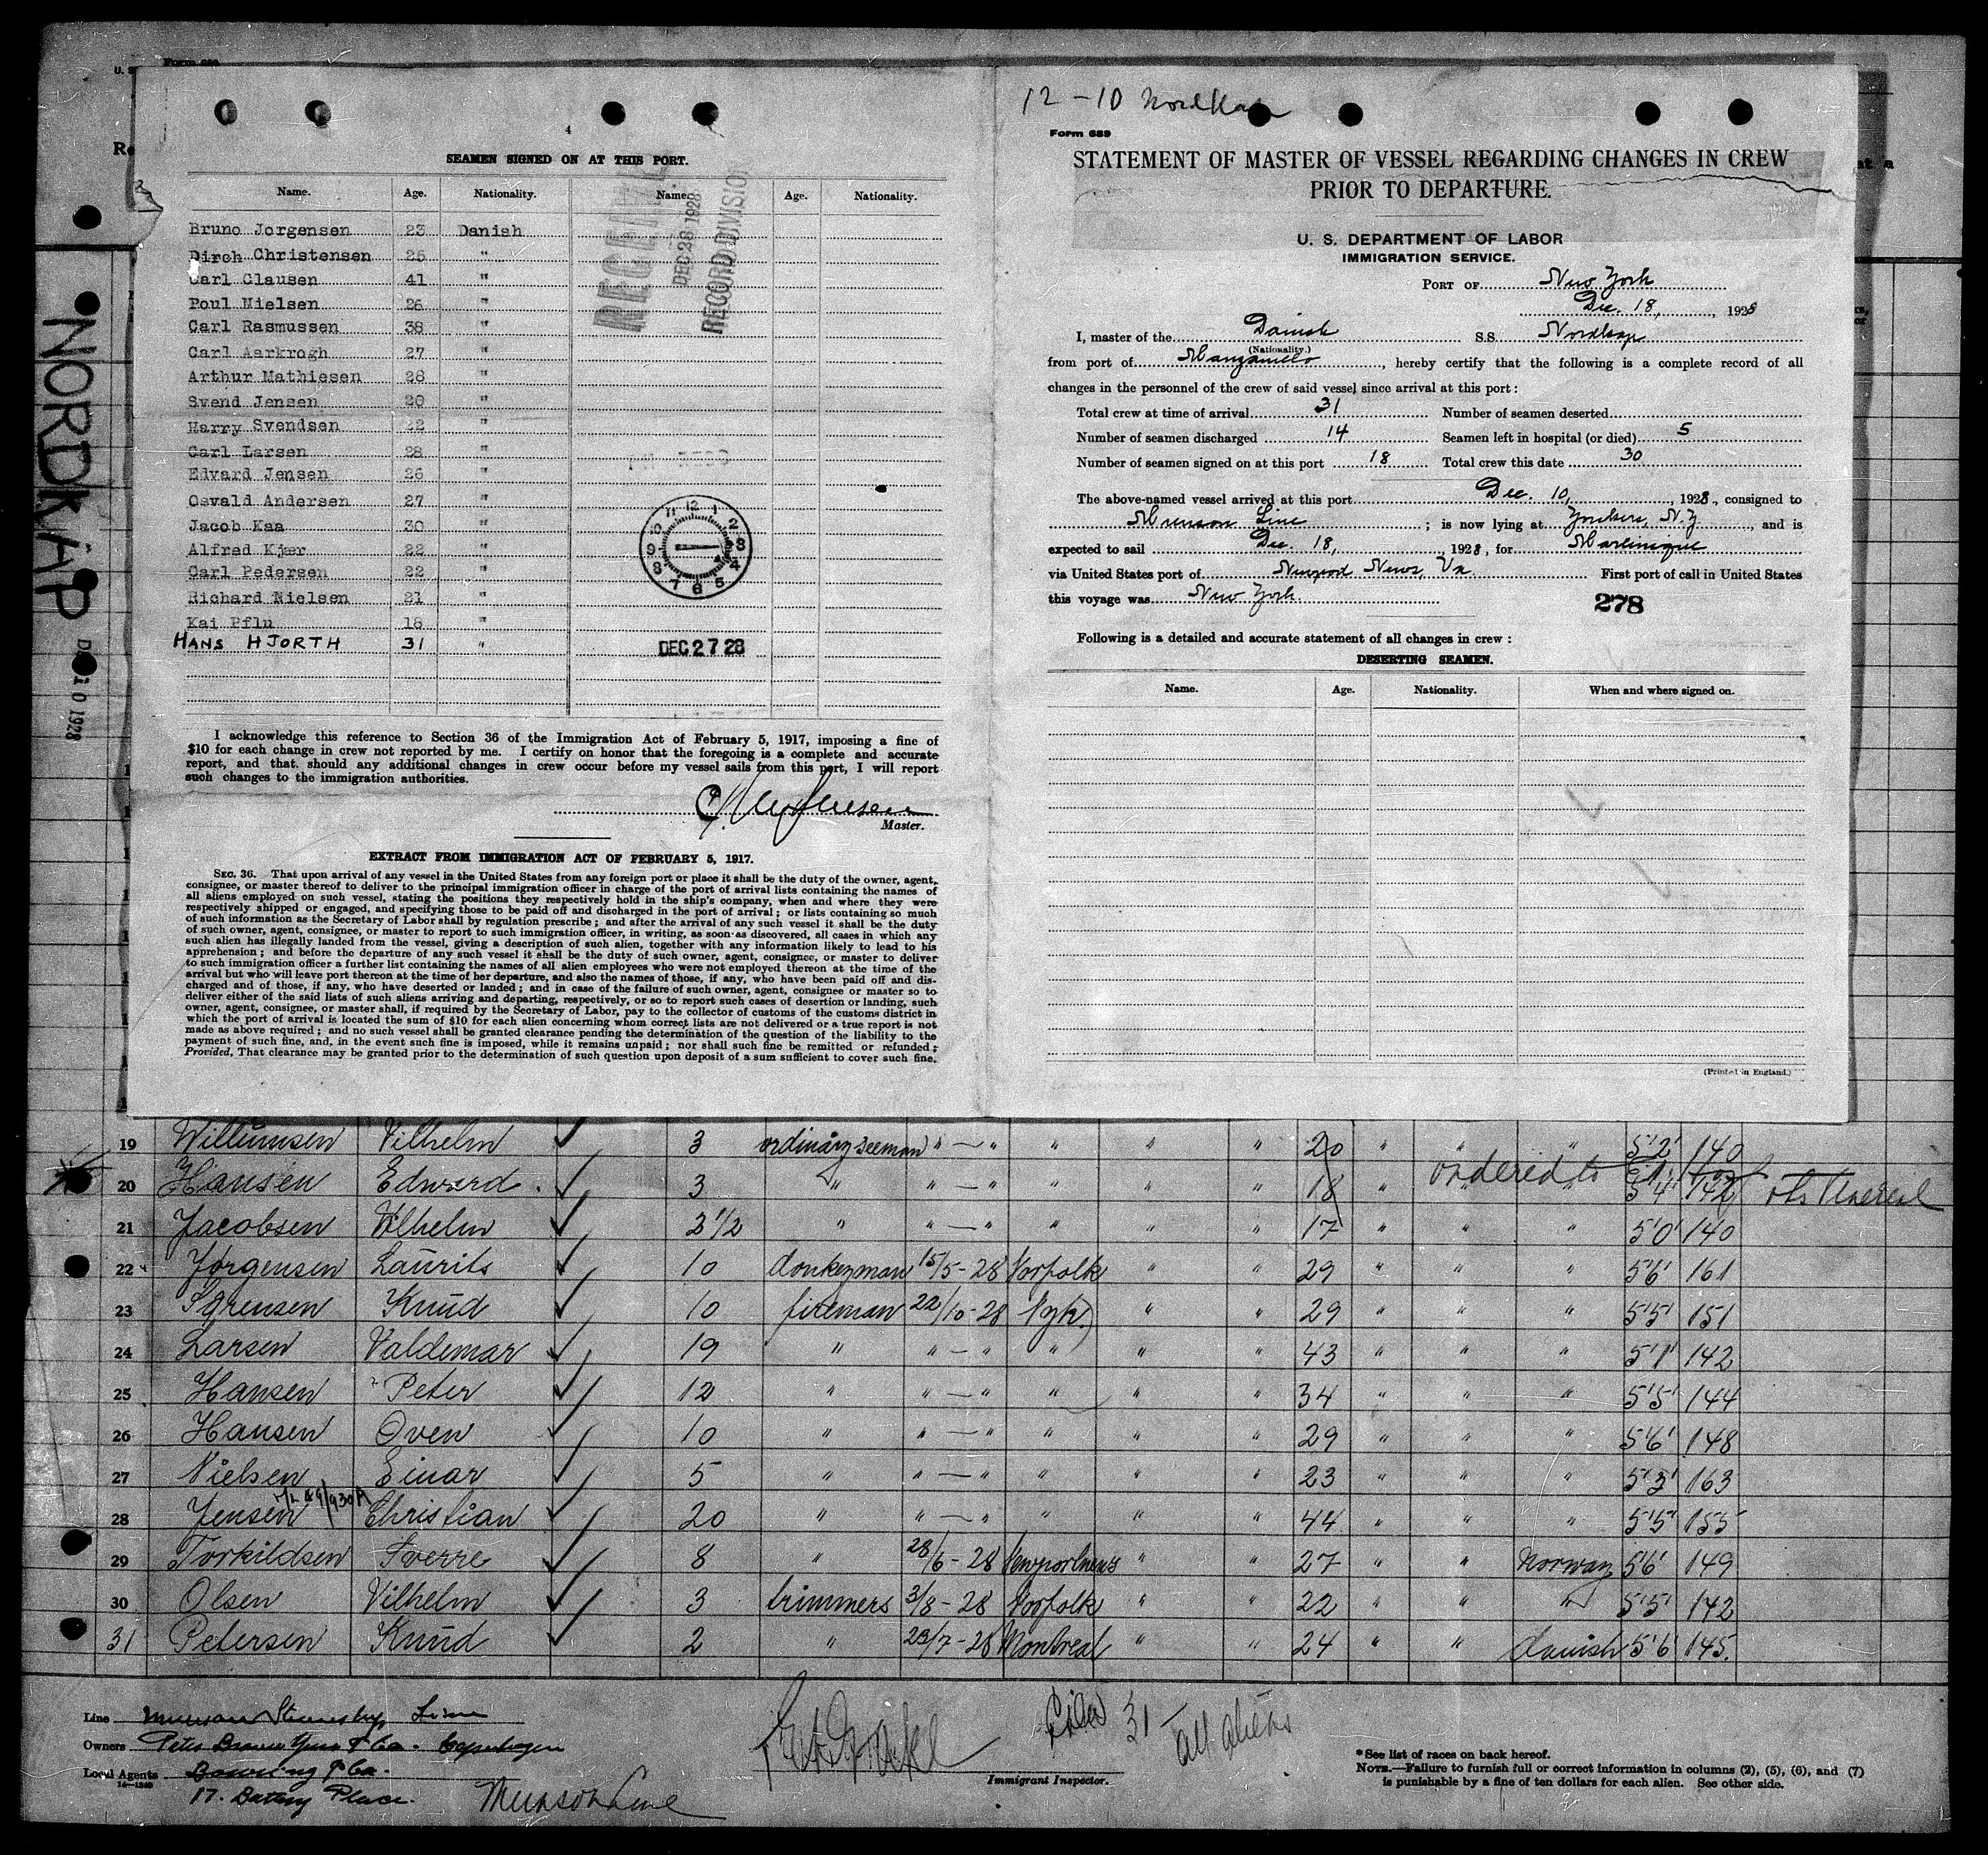 NORDKAP
DEC 10 1928
4
SEAMEN SIGNED ON AT THIS PORT.
Name. Age. Nationality. Name. Age. Nationality.
Bruno Jorgensen 23 Danish
Dirch Christensen 25 "
Carl Clausen 41 "
Poul Nielsen 26 "
Carl Rasmussen 38 "
Carl Aarkrogh 27 "
Arthur Mathiesen 26 "
Svend Jensen 20 "
Harry Svendsen 22 "
Carl Larsen 28 "
Edvard Jensen 26 "
Osvald Andersen 27 "
Jacob Kaa 30 "
Alfred Kjær 22 "
Carl Pedersen 22 "
Richard Nielsen 21 "
Kai Pflu 18 "
HANS HJORTH 31 "
RECEIVED
DEC 28 1928
RECORD DIVISION
12 1 2 3 4 5 6 7 8 9 10 11
DEC 27 28
I acknowledge this reference to Section 36 of the Immigration Act of February 5, 1917, imposing a fine of
$10 for each change in crew not reported by me. I certify on honor that the foregoing is a complete and accurate
report, and that should any additional changes in crew occur before my vessel sails from this port, I will report
such changes to the immigration authorities.
Master.
EXTRACT FROM IMMIGRATION ACT OF FEBRUARY 5, 1917.
SEC. 36. That upon arrival of any vessel in the United States from any foreign port or place it shall be the duty of the owner, agent,
consignee, or master thereof to deliver to the principal immigration officer in charge of the port of arrival lists containing the names of
all aliens employed on such vessel, stating the positions they respectively hold in the ship's company, when and where they were
respectively shipped or engaged, and specifying those to be paid off and discharged in the port of arrival; or lists containing so much
of such information as the Secretary of Labor shall by regulation prescribe; and after the arrival of any such vessel it shall be the duty
of such owner, agent, consignee, or master to report to such immigration officer, in writing, as soon as discovered, all cases in which any
such alien has illegally landed from the vessel, giving a description of such alien, together with any information likely to lead to his
apprehension; and before the departure of any such vessel it shall be the duty of such owner, agent, consignee, or master to deliver
to such immigration officer a further list containing the names of all alien employees who were not employed thereon at the time of the
arrival but who will leave port thereon at the time of her departure, and also the names of those, if any, who have been paid off and dis-
charged and of those, if any, who have deserted or landed; and in case of the failure of such owner, agent, consignee or master so to
deliver either of the said lists of such aliens arriving and departing, respectively, or so to report such cases of desertion or landing, such
owner, agent, consignee, or master shall, if required by the Secretary of Labor, pay to the collector of customs of the customs district in
which the port of arrival is located the sum of $10 for each alien concerning whom correct lists are not delivered or a true report is not
made as above required; and no such vessel shall be granted clearance pending the determination of the question of the liability to the
payment of such fine, and, in the event such fine is imposed, while it remains unpaid; nor shall such fine be remitted or refunded:
Provided, That clearance may be granted prior to the determination of such question upon deposit of a sum sufficient to cover such fine.
12-10 Nordkap
Form 689
STATEMENT OF MASTER OF VESSEL REGARDING CHANGES IN CREW
PRIOR TO DEPARTURE.
U. S. DEPARTMENT OF LABOR
IMMIGRATION SERVICE.
PORT OF New York
Dec. 18, , 1928
I, master of the Danish S.S. Nordkap
(Nationality.)
from port of Manzanillo, hereby certify that the following is a complete record of all
changes in the personnel of the crew of said vessel since arrival at this port:
Total crew at time of arrival 31 Number of seamen deserted
Number of seamen discharged 14 Seamen left in hospital (or died) 5
Number of seamen signed on at this port 18 Total crew this date 30
The above-named vessel arrived at this port Dec. 10, , 1928, consigned to
Munson Line ; is now lying at Yonkers, N.Y , and is
expected to sail Dec. 18, 1928, for Martinique
via United States port of Newport News, Va First port of call in United States
this voyage was New York.
278
Following is a detailed and accurate statement of all changes in crew:
DESERTING SEAMEN.
Name. Age. Nationality. When and where signed on.
(Printed in England.)
19 Willumsen Vilhelm 3 ordinary seeman " — " " " " 20 " " " 5'2' 140
20 Hansen Edward 3 " " — " " " " 18 " " " 5'4' 142
ordered to
21 Jacobsen Vilhelm 2 1/2 " " — " " " " 17 " " " 5'0' 140
22 Jørgensen Laurits 10 donkeyman 15/5-28 Norfolk " " 29 " " " 5'6' 161
23 Sørensen Knud 10 fireman 22/10-28 Nyk. " " 29 " " " 5'5' 151
24 Larsen Valdemar 19 " " — " " " " 43 " " " 5'1' 142
25 Hansen Peter 12 " " — " " " " 34 " " " 5'5' 144
26 Hansen Oven 10 " " — " " " " 29 " " " 5'6' 148
27 Nielsen Einar 5 " " — " " " " 23 " " " 5'3' 163
28 Jensen Christian 20 " " — " " " " 44 " " " 5'5' 155
29 Torkildsen Sverre 8 " 28/6-28 Newportnews " " 27 " " Norway 5'6' 149
30 Olsen Vilhelm 3 trimmers 3/8-28 Norfolk " " 22 " " " 5'5' 142
31 Petersen Knud 2 " 23/7-28 Montreal " " 24 " " danish 5'6' 145.
Line Munson Steamship Line
Owners Copenhagen
Local Agents Bowring & Co.
14—1240
17. Battery Place.
Munson Line
Immigrant Inspector.
31 all aliens
*See list of races on back hereof.
NOTE.—Failure to furnish full or correct information in columns (2), (5), (6), and (7)
is punishable by a fine of ten dollars for each alien. See other side.